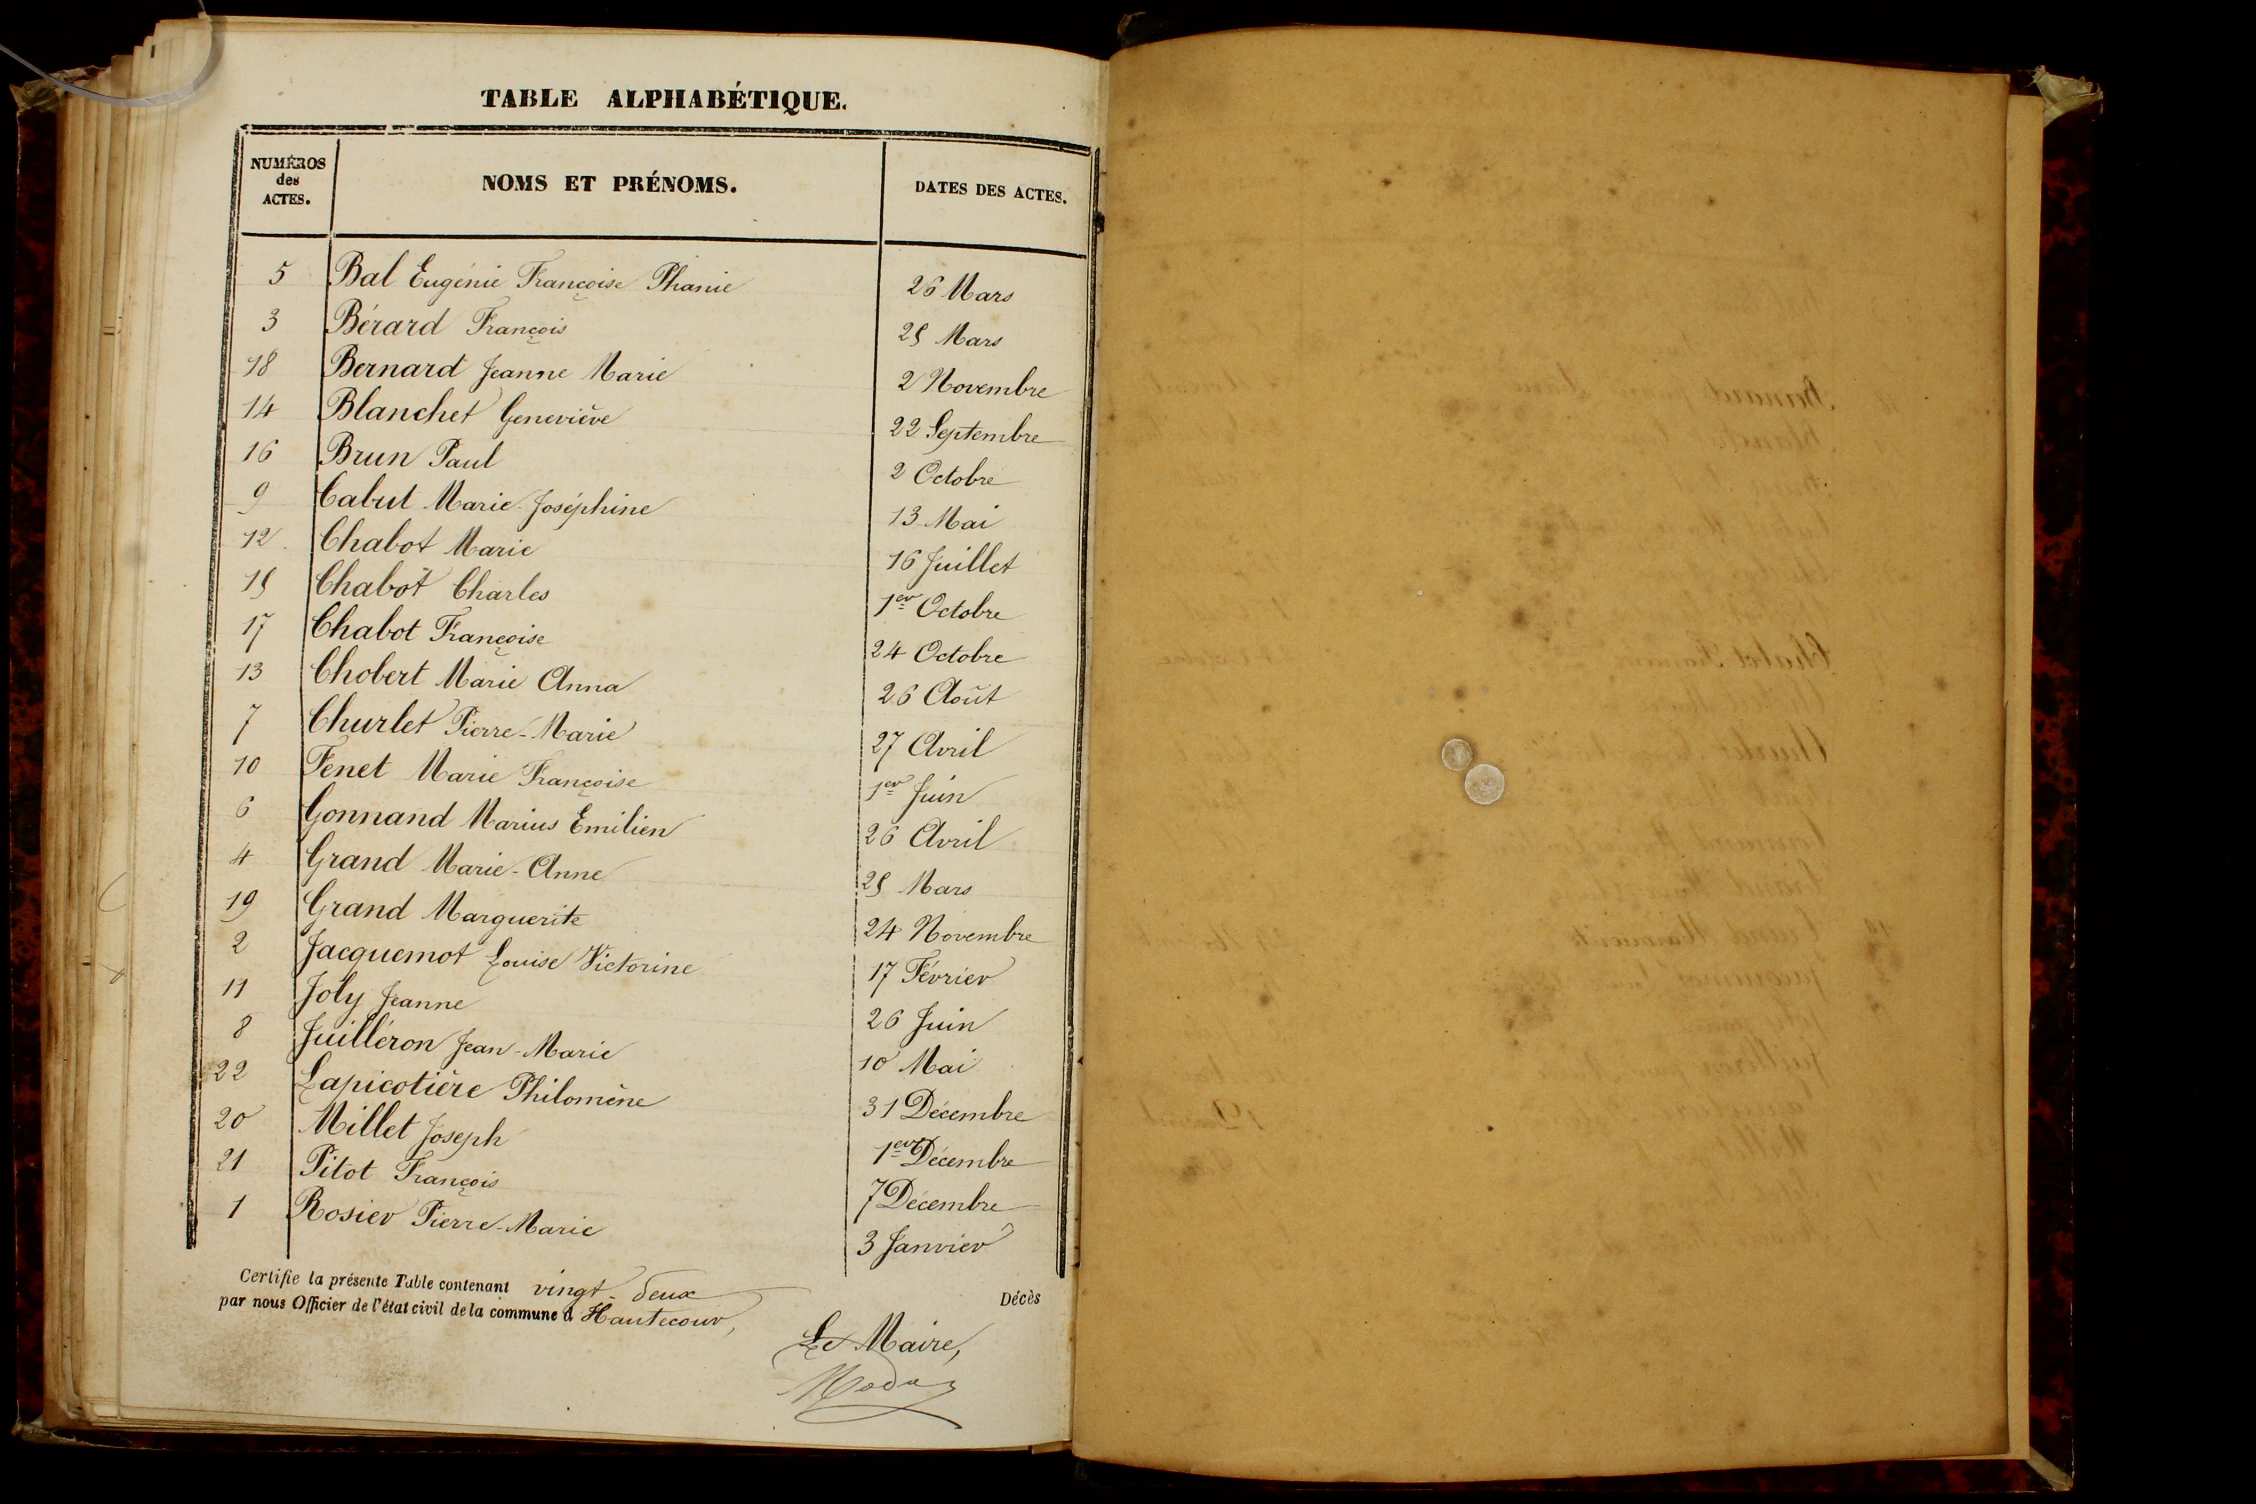 TABLE ALPHABÉTIQUE.
NUMÉROS des ACTES. NOMS ET PRÉNOMS. DATES DES ACTES.
5 Bal Eugénie Françoise Phanie 26 Mars
3 Bérard François 25 Mars
18 Bernard Jeanne Marie 2 Novembre
14 Blanchet Geneviève 22 Septembre
16 Brun Paul 2 Octobre
9 Cabut Marie Joséphine 13 Mai
12 Chabot Marie 16 Juillet
15 Chabot Charles 1er Octobre
17 Chabot Françoise 24 Octobre
13 Chobert Marie Anna 26 Août
7 Churlet Pierre-Marie 27 Avril
10 Fenet Marie Françoise 1er Juin
6 Gonnand Marius Emilien 26 Avril
4 Grand Marie-Anne 25 Mars
19 Grand Marguerite 24 Novembre
2 Jacquemot Louise Victorine 17 Février
11 Joly Jeanne 26 Juin
8 Juilléron Jean-Marie 10 Mai
22 Lapicotière Philomène 31 Décembre
20 Millet Joseph 1er Décembre
21 Pitot François 7 Décembre
1 Rosier Pierre-Marie 3 Janvier
Certifie la présente Table contenant vingt-deux Décès
par nous Officier de l'état civil de la commune d Hautecour,
Le Maire,